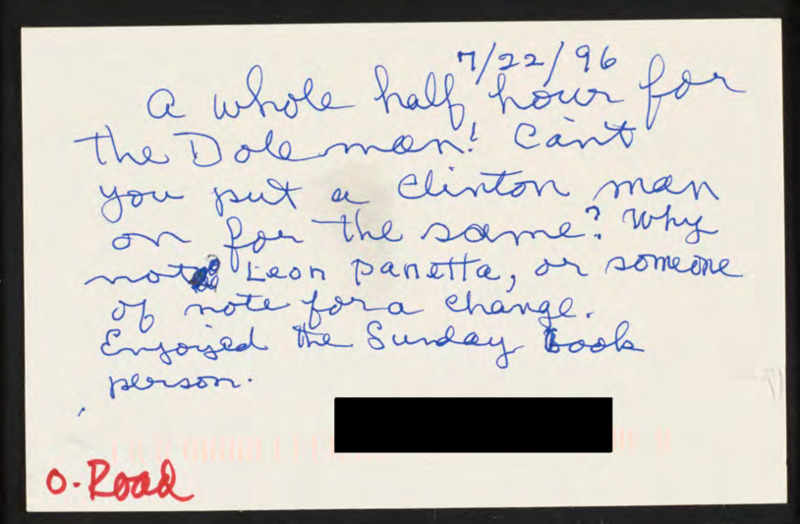 7/22/96
A whole half hour for
the Dole man! Can't
you put a Clinton man
on for the same? Why
not Leon Panetta, or someone
of note for a change.
Enjoyed the Sunday book
person.
O. Road